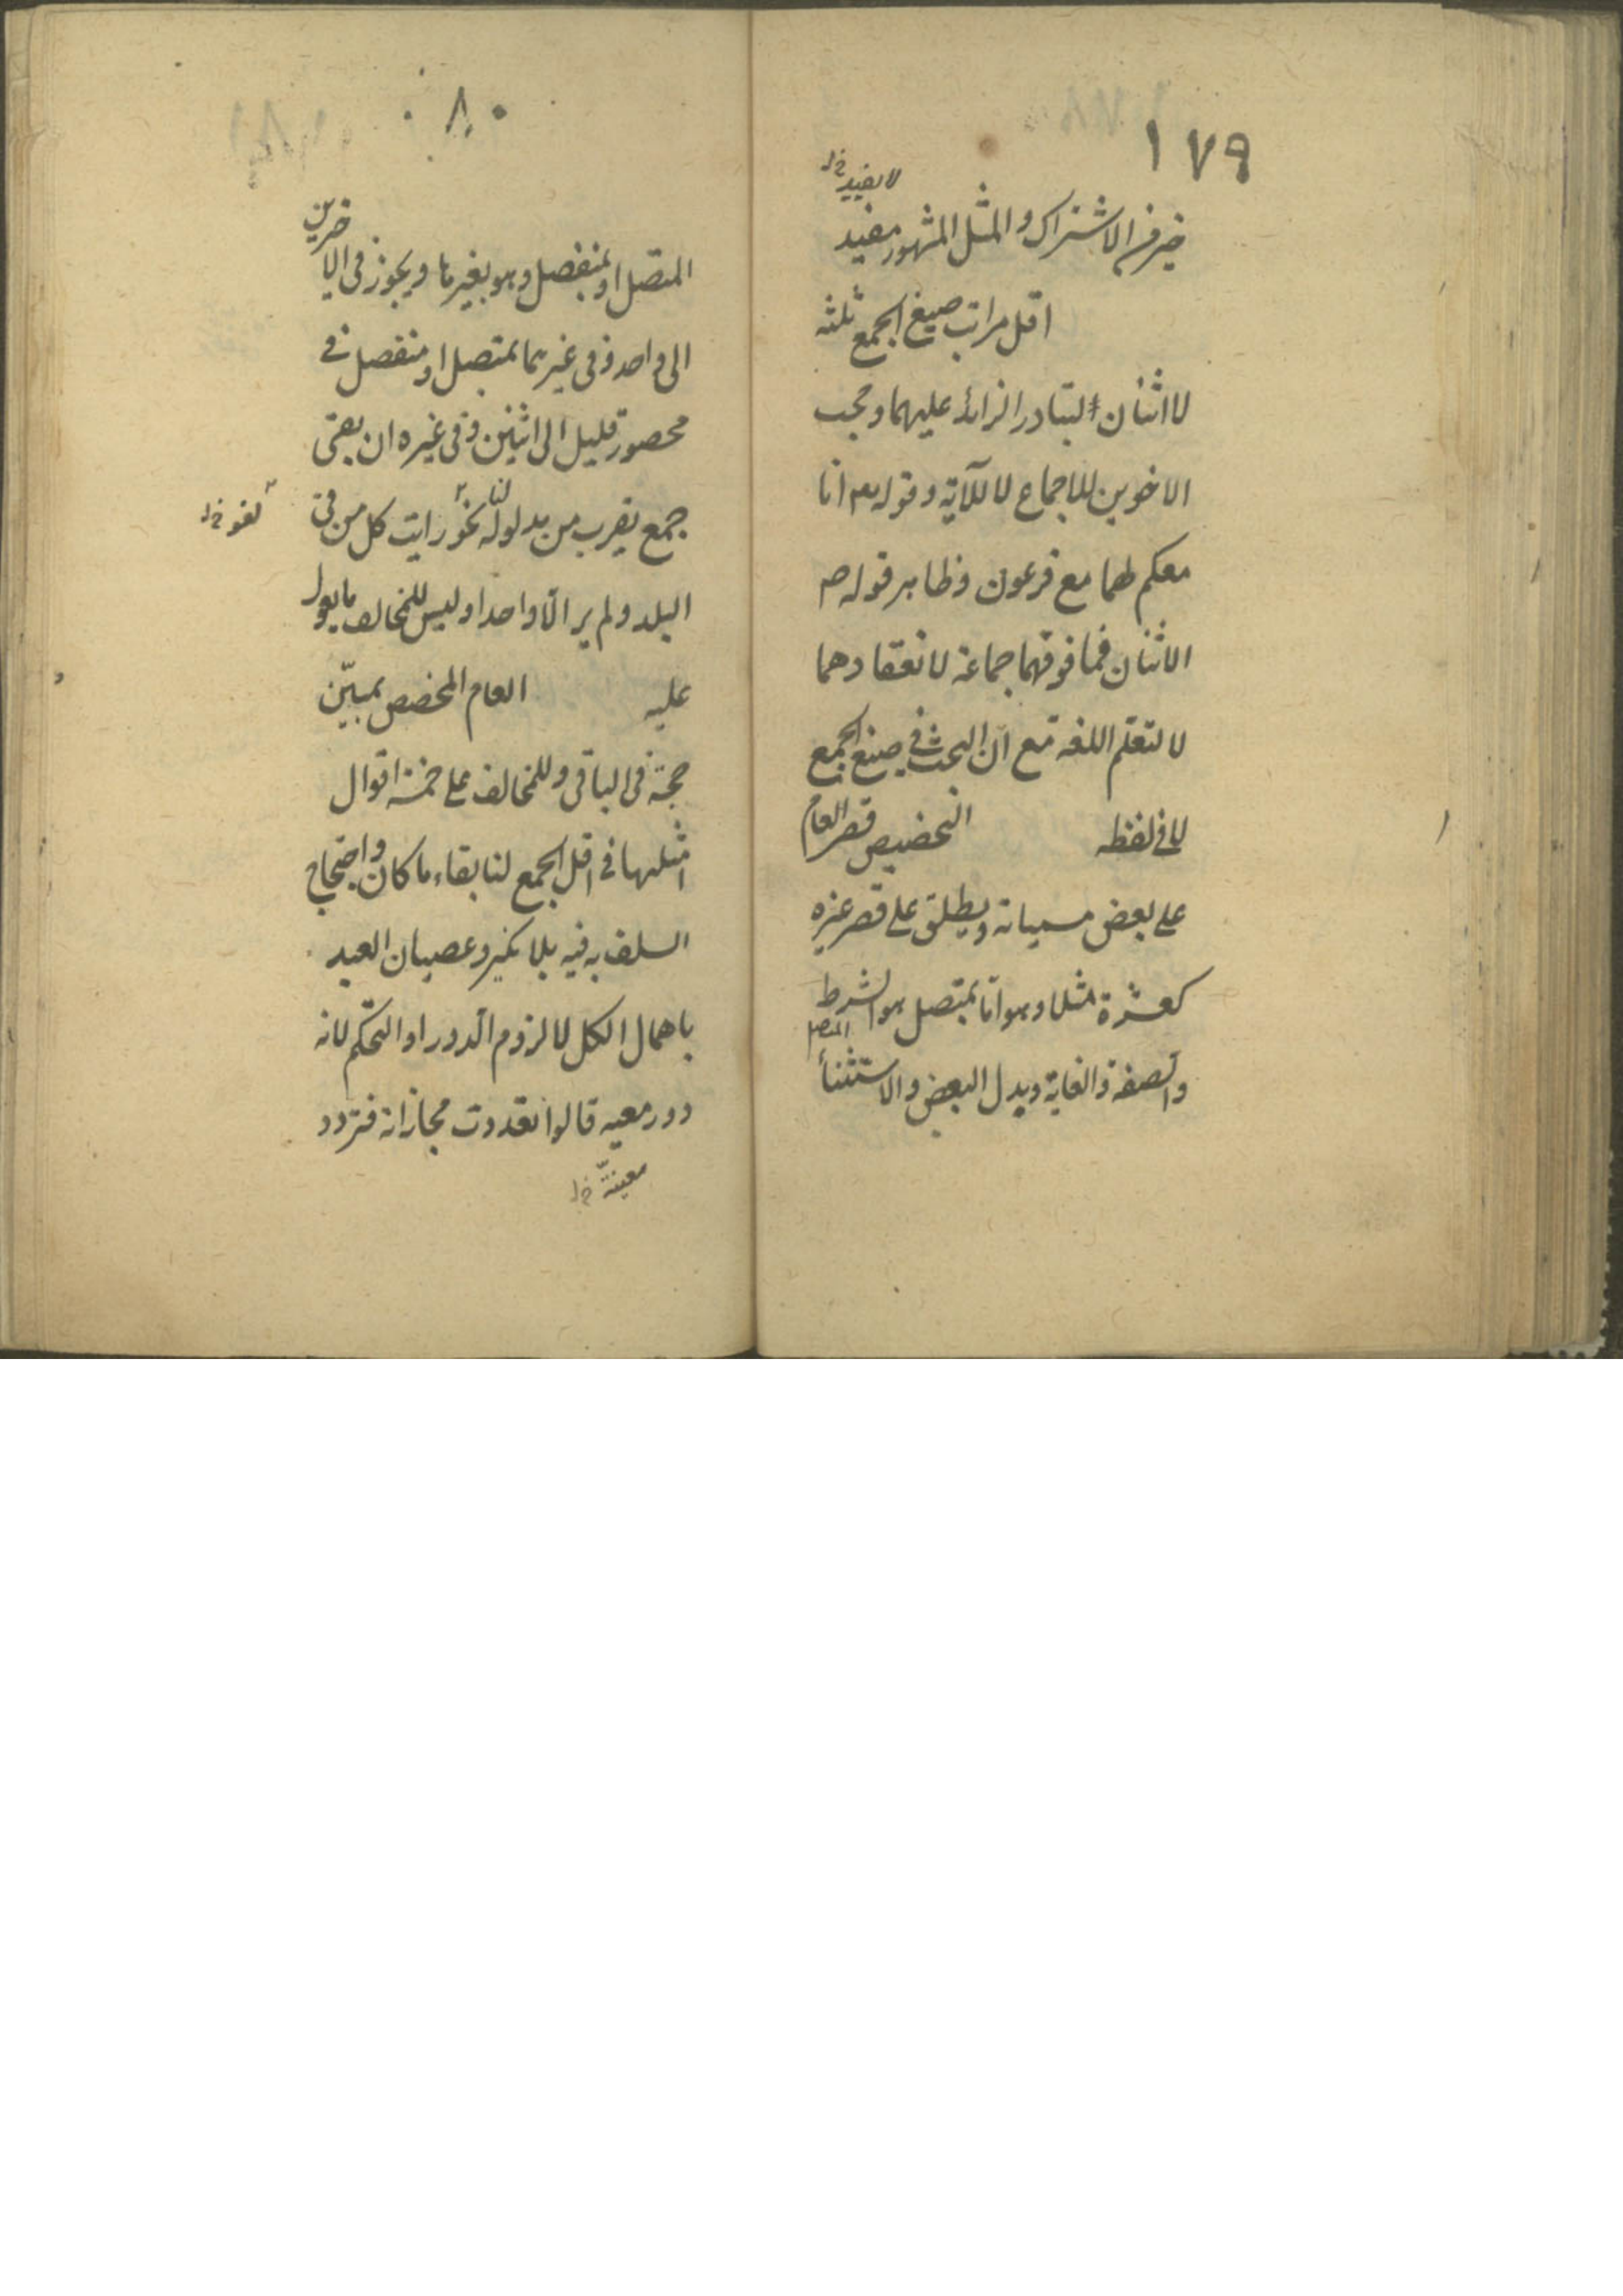 ١٧٩
لا يفيد خ‌ل
خير من الاشتراك والمثل المشهور مفيد
اقل مراتب صيغ الجمع ثلثه
لا اثنان لتبادر الزائد عليهما وحجب
الاخوين للاجماع لا للآية وقوله تعم انا
معكم لهما مع فرعون وظاهر قوله ص
الاثنان فما فوقهما جماعة لانعقادهما
لا لتعلم اللغه مع ان البحث في صيغ الجمع
لا في لفظه التخصيص قصر العام
على بعض مسمياته ويطلق على قصر غيره
كعشرة مثلا وهو اما بمتصل هو الشرط
والصفة والغاية وبدل البعض والاستثناء
المتصل
٨٠
المتصل او بمنفصل وهو بغيرها ويجوز في الاخرين
الى واحد وفي غيرهما بمتصل او منفصل في
محصور قليل الى اثنين وفي غيره ان بقى
جمع يقرب من مدلوله لنا نحو رايت كل من في
لغو خ‌ل
البلد ولم ير الا واحدا وليس للمخالف ما يعول
عليه العام المخصص بمبيّن
حجة في الباقي وللمخالف على خمسة اقوال
امثلها في اقل الجمع لنا بقاء ما كان واحتجاج
السلف به فيه بلا نكير وعصيان العبد
باهمال الكل لا لزوم الدور او التحكم لانه
دور معيه قالوا تعددت مجازاته فتردد
معينة خ‌ل